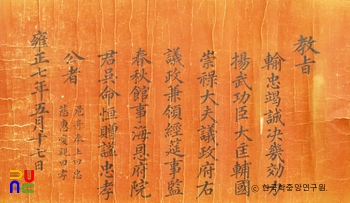 教旨
輸忠竭誠決幾効力
揚武功臣大匡輔國
崇祿大夫議政府右
議政兼領經筵事監
春秋館事海恩府院
君吳命恒贈諡忠孝
公者
危身奉上曰忠
慈惠愛親曰孝
雍正七年五月十七日
한국학중앙연구원